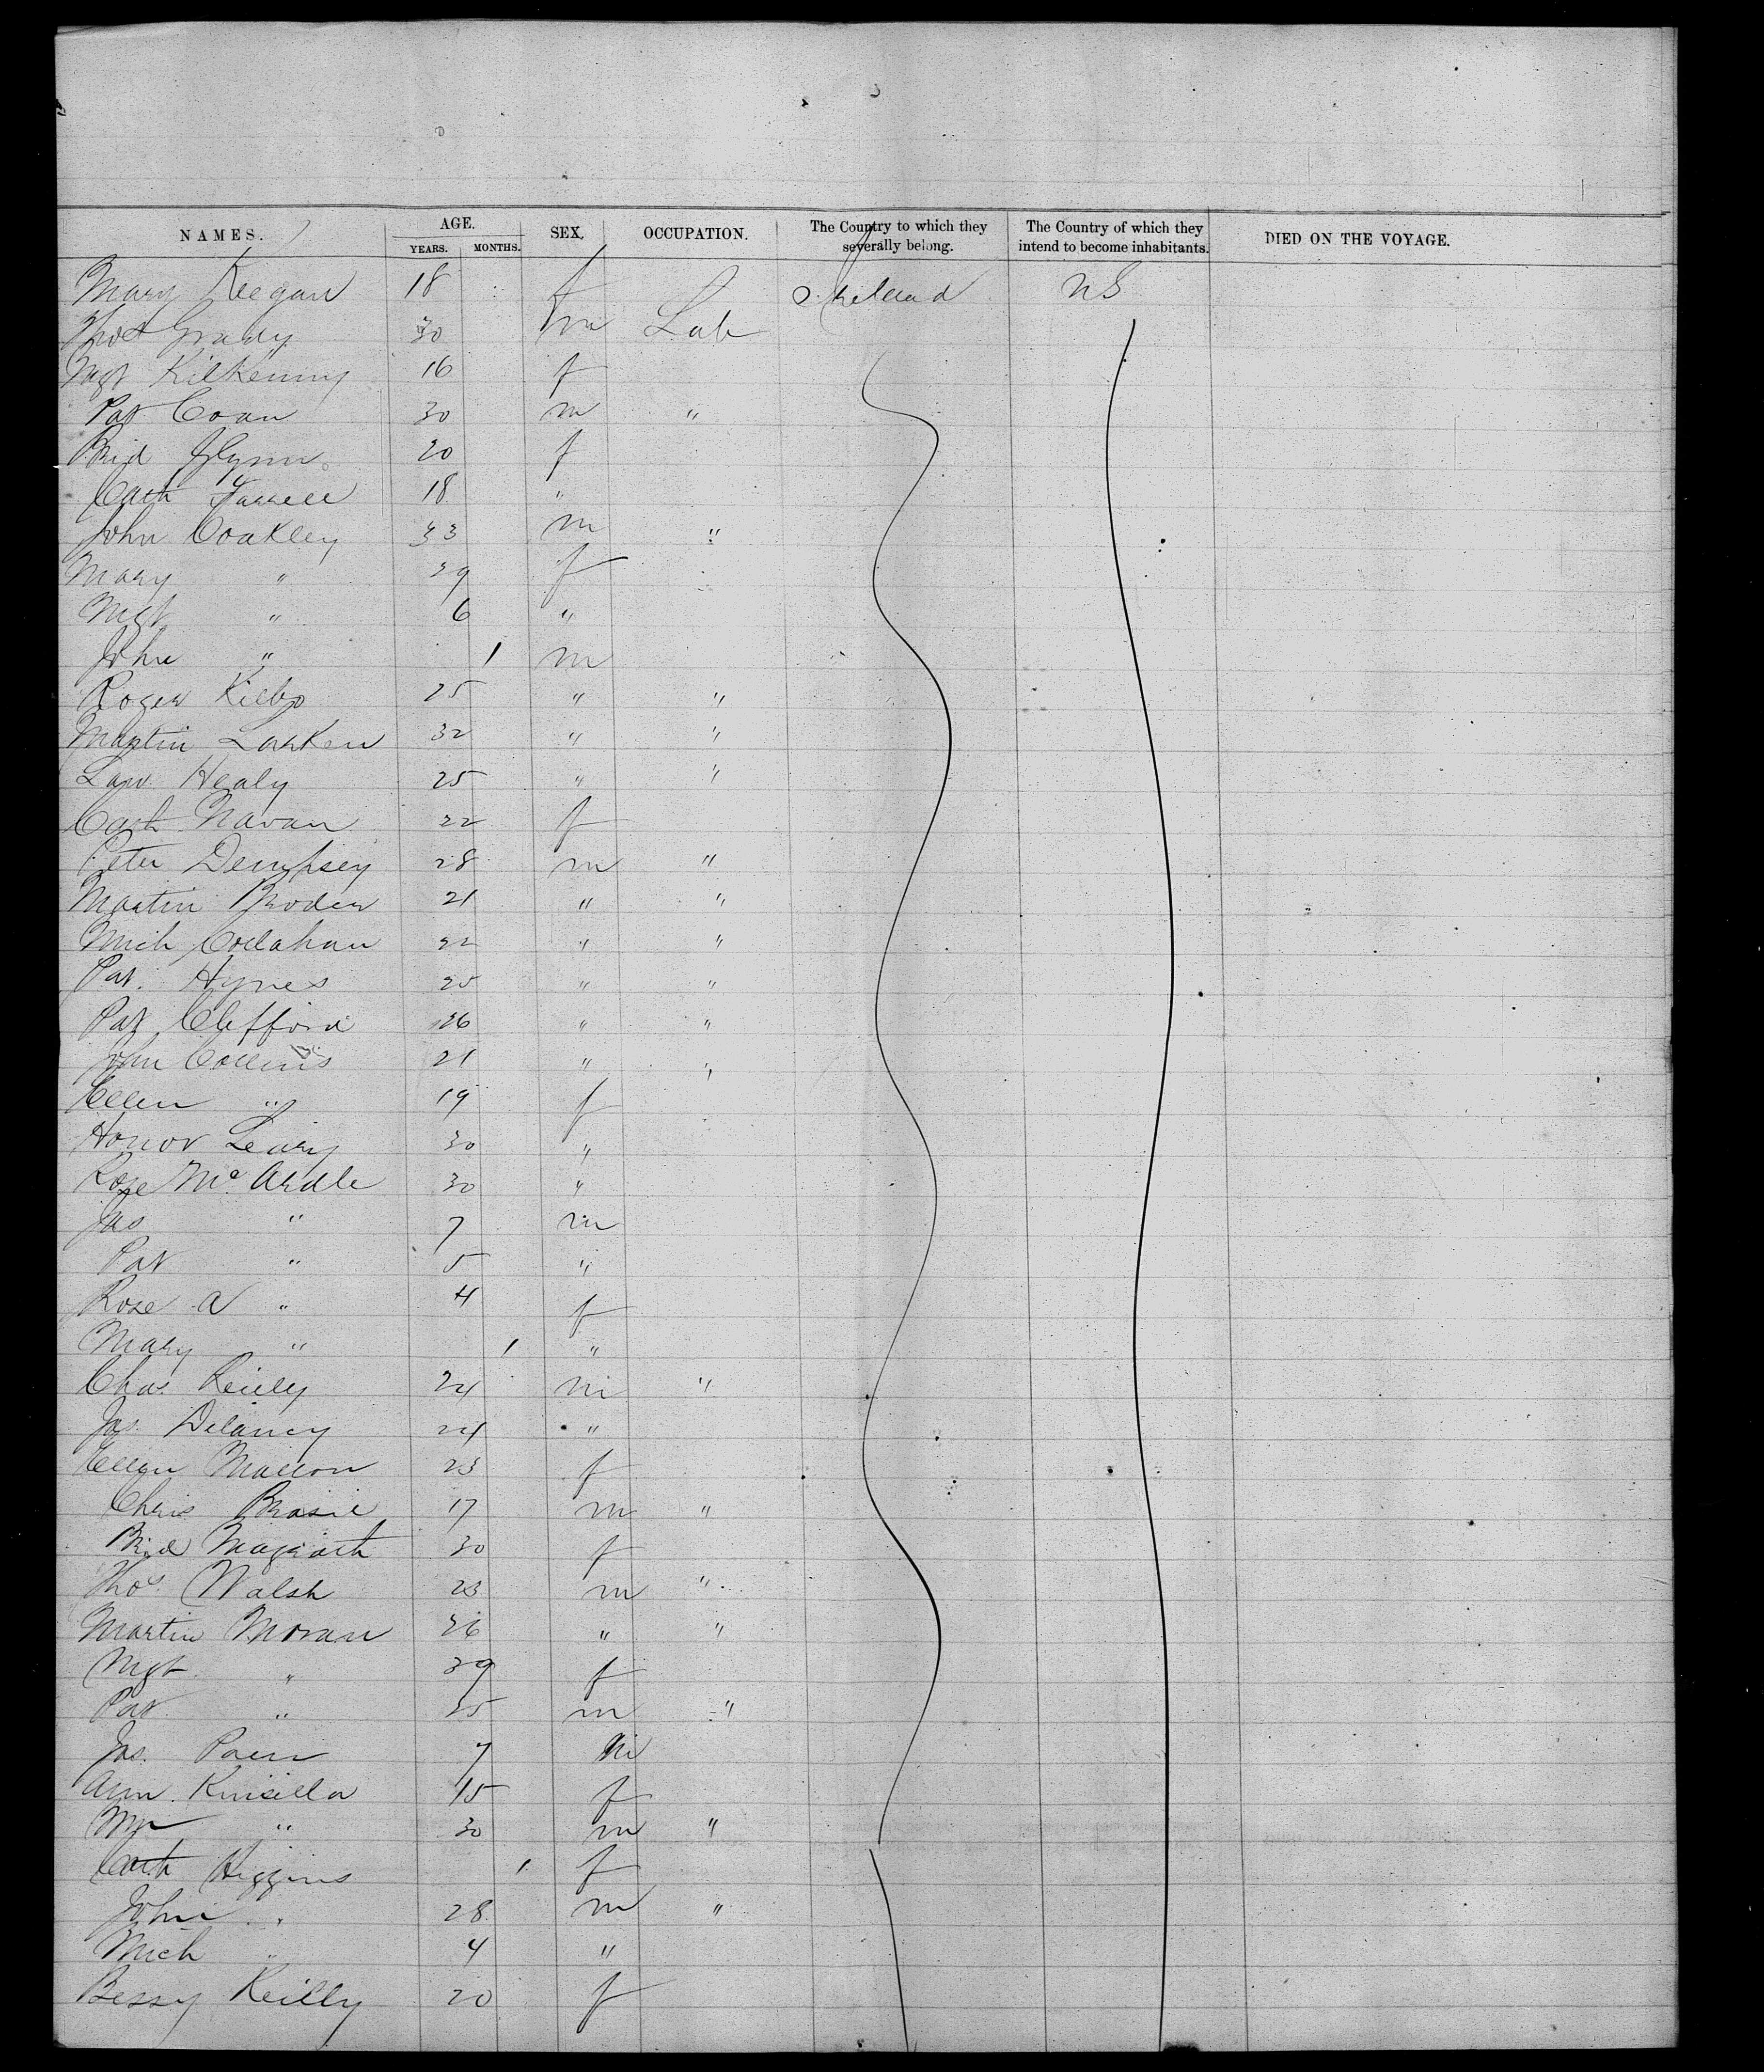 NAMES. AGE. SEX. OCCUPATION. The Country to which they severally belong. The Country of which they intend to become inhabitants. DIED ON THE VOYAGE.
YEARS. MONTHS.
Mary Keegan 18 f Ireland US
Thos Grady 30 m Lab
Mgt Kilkenny 16 f
Pat Coan 30 m "
Brid Glynn 20 f
Cath Farrell 18 "
John Coakley 33 m "
Mary " 29 f
Mgt " 6 "
John " 1 m
Roger Kilby 25 " "
Martin Larken 32 " "
Law. Healy 25 " "
Cath Navan 22 f
Peter Dempsey 28 m "
Martin Broder 21 " "
Mich Collahan 22 " "
Pat. Hynes 25 " "
Pat Clifford 26 " "
John Collins 21 " "
Ellen " 19 f
Honor Leary 30 "
Rose McArdle 30 "
Jas " 7 m
Pat " 5 "
Rose A " 4 f
Mary " 1 "
Chas Reilly 24 m "
Jas. Delaney 24 "
Ellen Mallon 23 f
Chris Brasil 17 m "
Brid Magrath 30 f
Thos. Walsh 23 m "
Martin Moran 26 " "
Mgt " 39 f
Pat " 35 m "
Jas. 7 m
Ann Kinsella 15 f
Wm " 30 m "
Cath Higgins 1 f
John " 28 m "
Mich " 4 "
Bessy Reilly 20 f